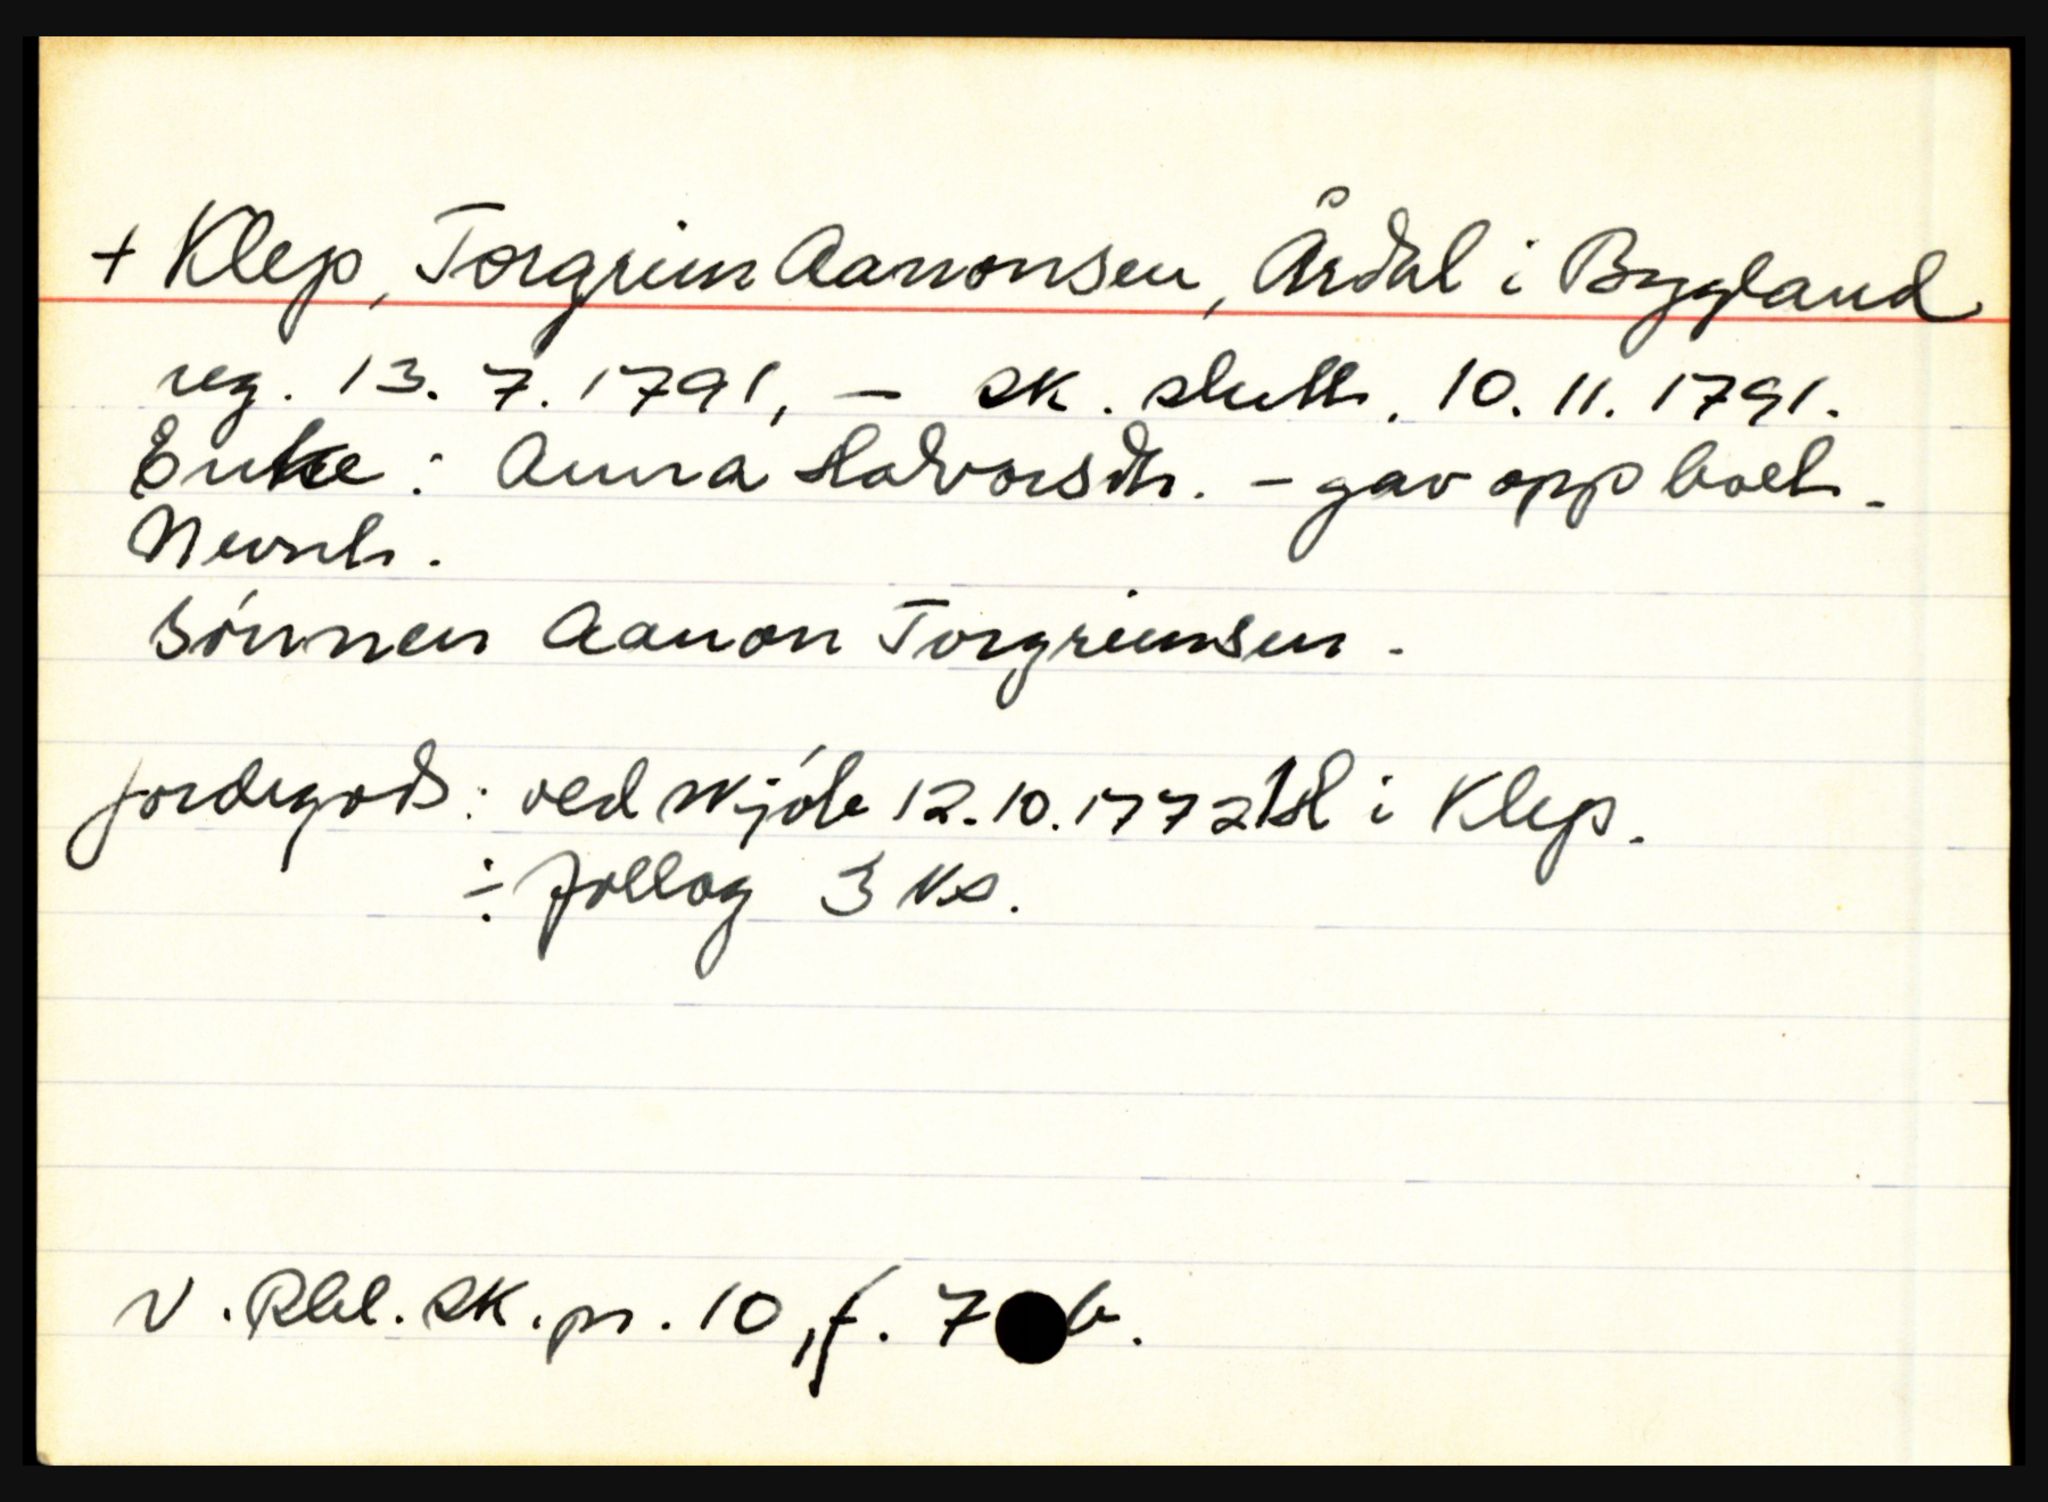 + Klep, Torgrim Aanonsen, Årdal i Bygland
reg. 13. 7. 1791, – sk. slutt. 10. 11. 1791.
Enke: Anna Halvorsdtr. – gav opp boet.
Nevnt.
Sönnen Aanon Torgrimsen.
Jordegods: ved skjöte 12.10.1772 1 hd i Klep.
÷ follog 3 ks.
V. Rbl. sk. pr. 10, f. 7 b.